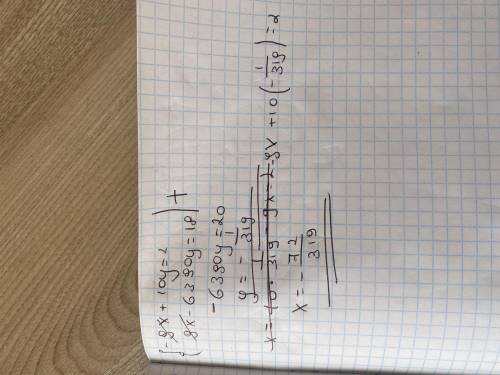 -9x + 10y = 2
9x - 6390y = 18 +
-6380y = 20
y = - 1/319
x = 10 · 1/319 - 9x = 2 -9x + 10(- 1/319) = 2
x = - 72/319